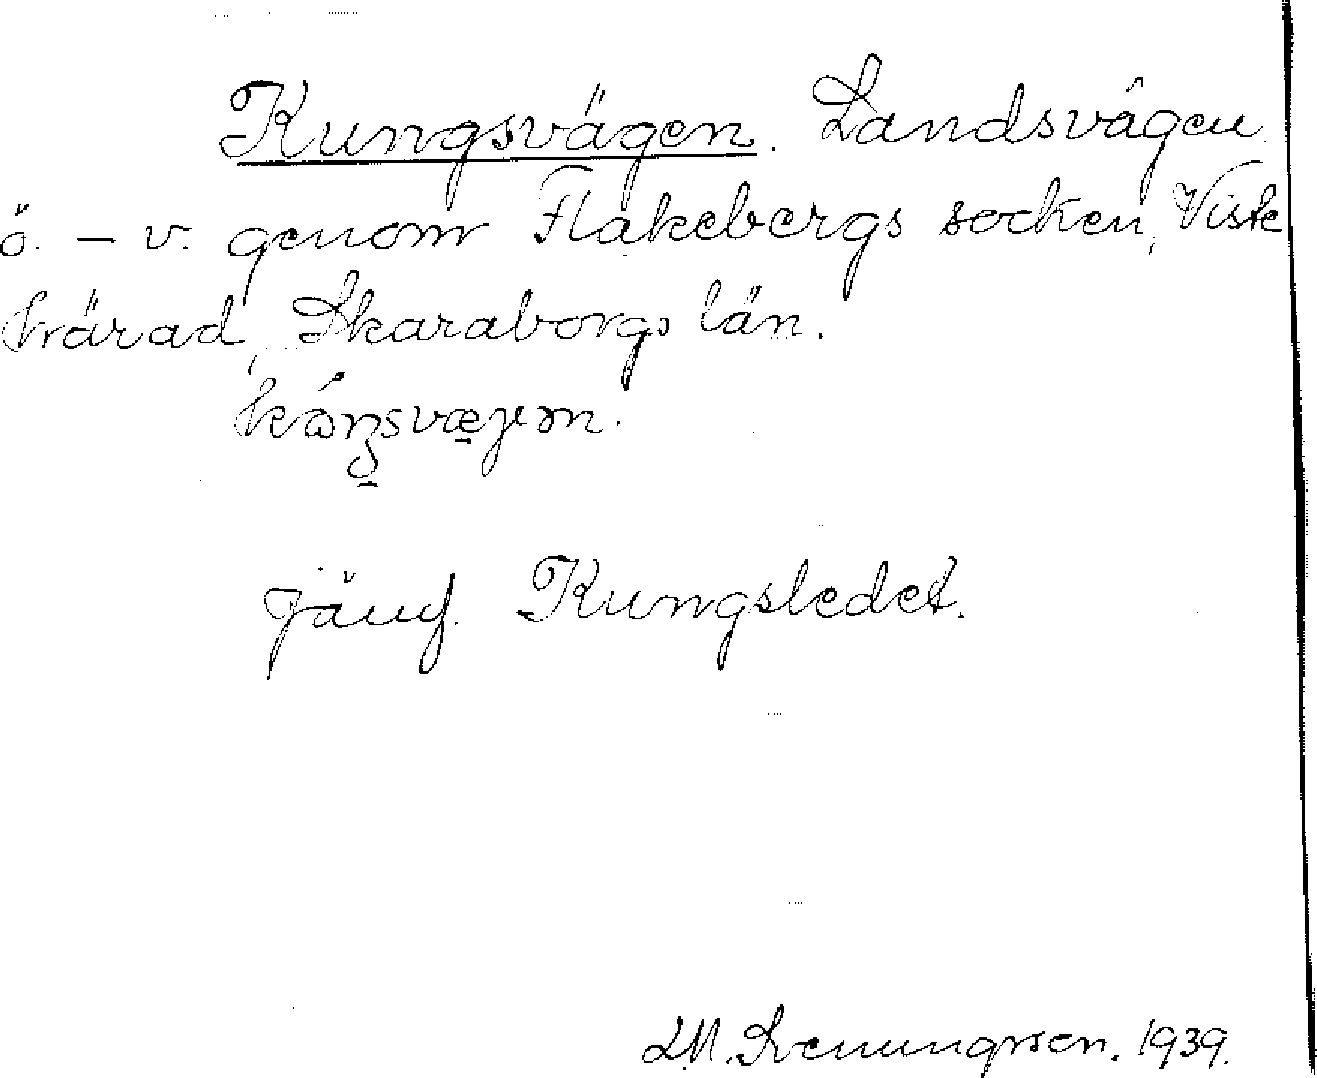 Kungsvägen. Landsvägen
ö. – v. genom Flakebergs socken, Viste
härad, Skaraborgs län.
Jämf. Kungsledet.
L.M. Svenungsson. 1939.